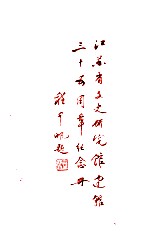 江苏省文史研究馆建馆
三十五周年纪念册
程千帆题